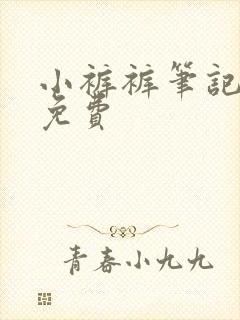 小裤裤筆記
免費
青春小九九